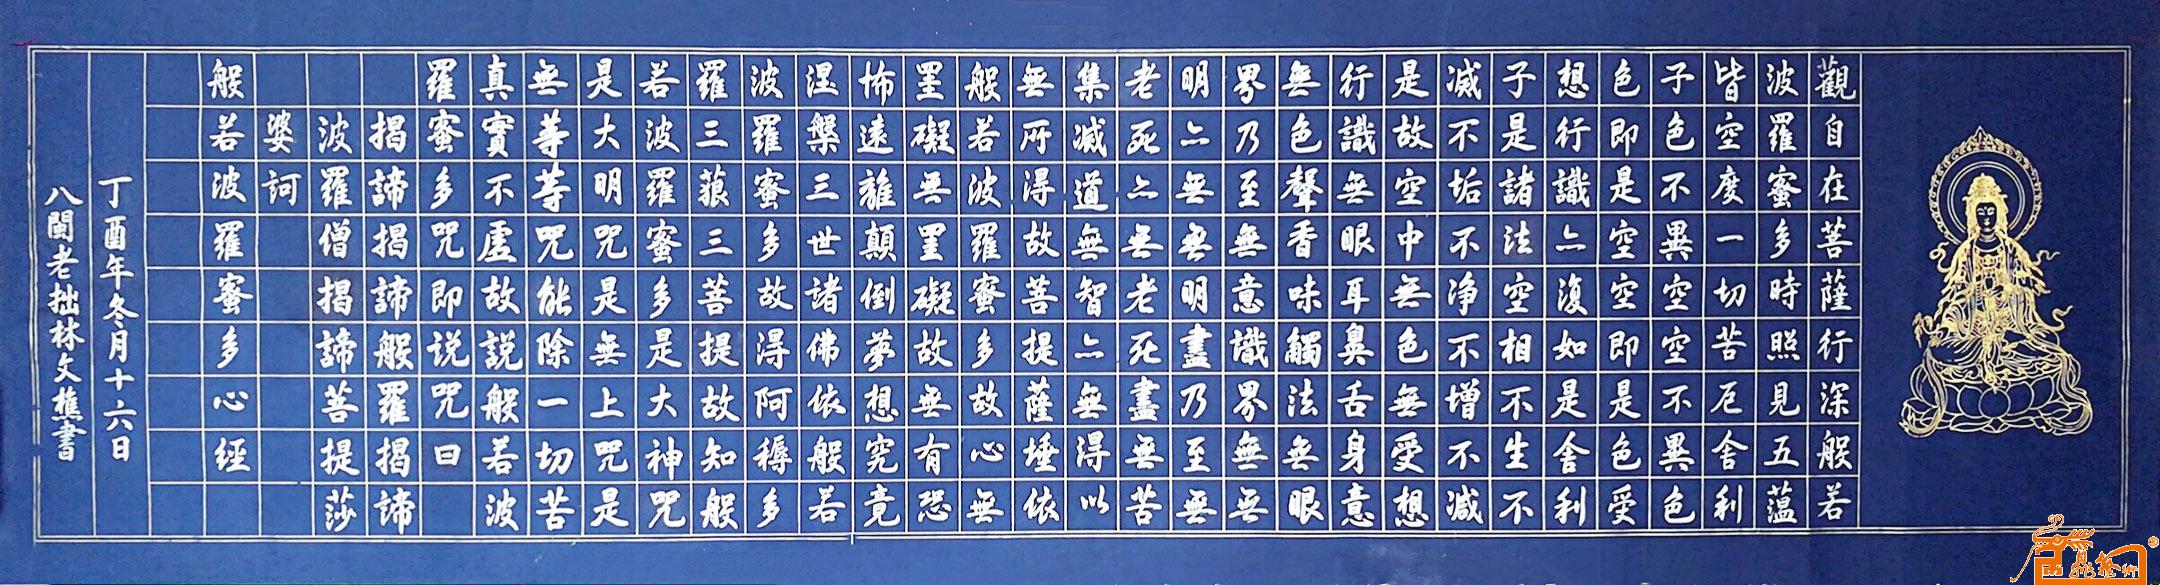 觀自在菩薩行深般若
波羅蜜多時照見五藴
皆空度一切苦厄舍利
子色不異空空不異色
色即是空空即是色受
想行識亦復如是舍利
子是諸法空相不生不
减不垢不净不增不减
是故空中無色無受想
行識無眼耳鼻舌身意
無色聲香味觸法無眼
界乃至無意識界無無
明亦無無明盡乃至無
老死亦無老死盡無苦
集滅道無智亦無得以
無所得故菩提薩埵依
般若波羅蜜多故心無
罣礙無罣礙故無有恐
怖遠離顛倒夢想究竟
涅槃三世諸佛依般若
波羅蜜多故得阿耨多
羅三藐三菩提故知般
若波羅蜜多是大神咒
是大明咒是無上咒是
無等等咒能除一切苦
真實不虛故説般若波
羅蜜多咒即説咒曰
揭諦揭諦般羅揭諦
波羅僧揭諦菩提莎
婆訶
般若波羅蜜多心經
丁酉年冬月十六日
八閩老拙林文樵書